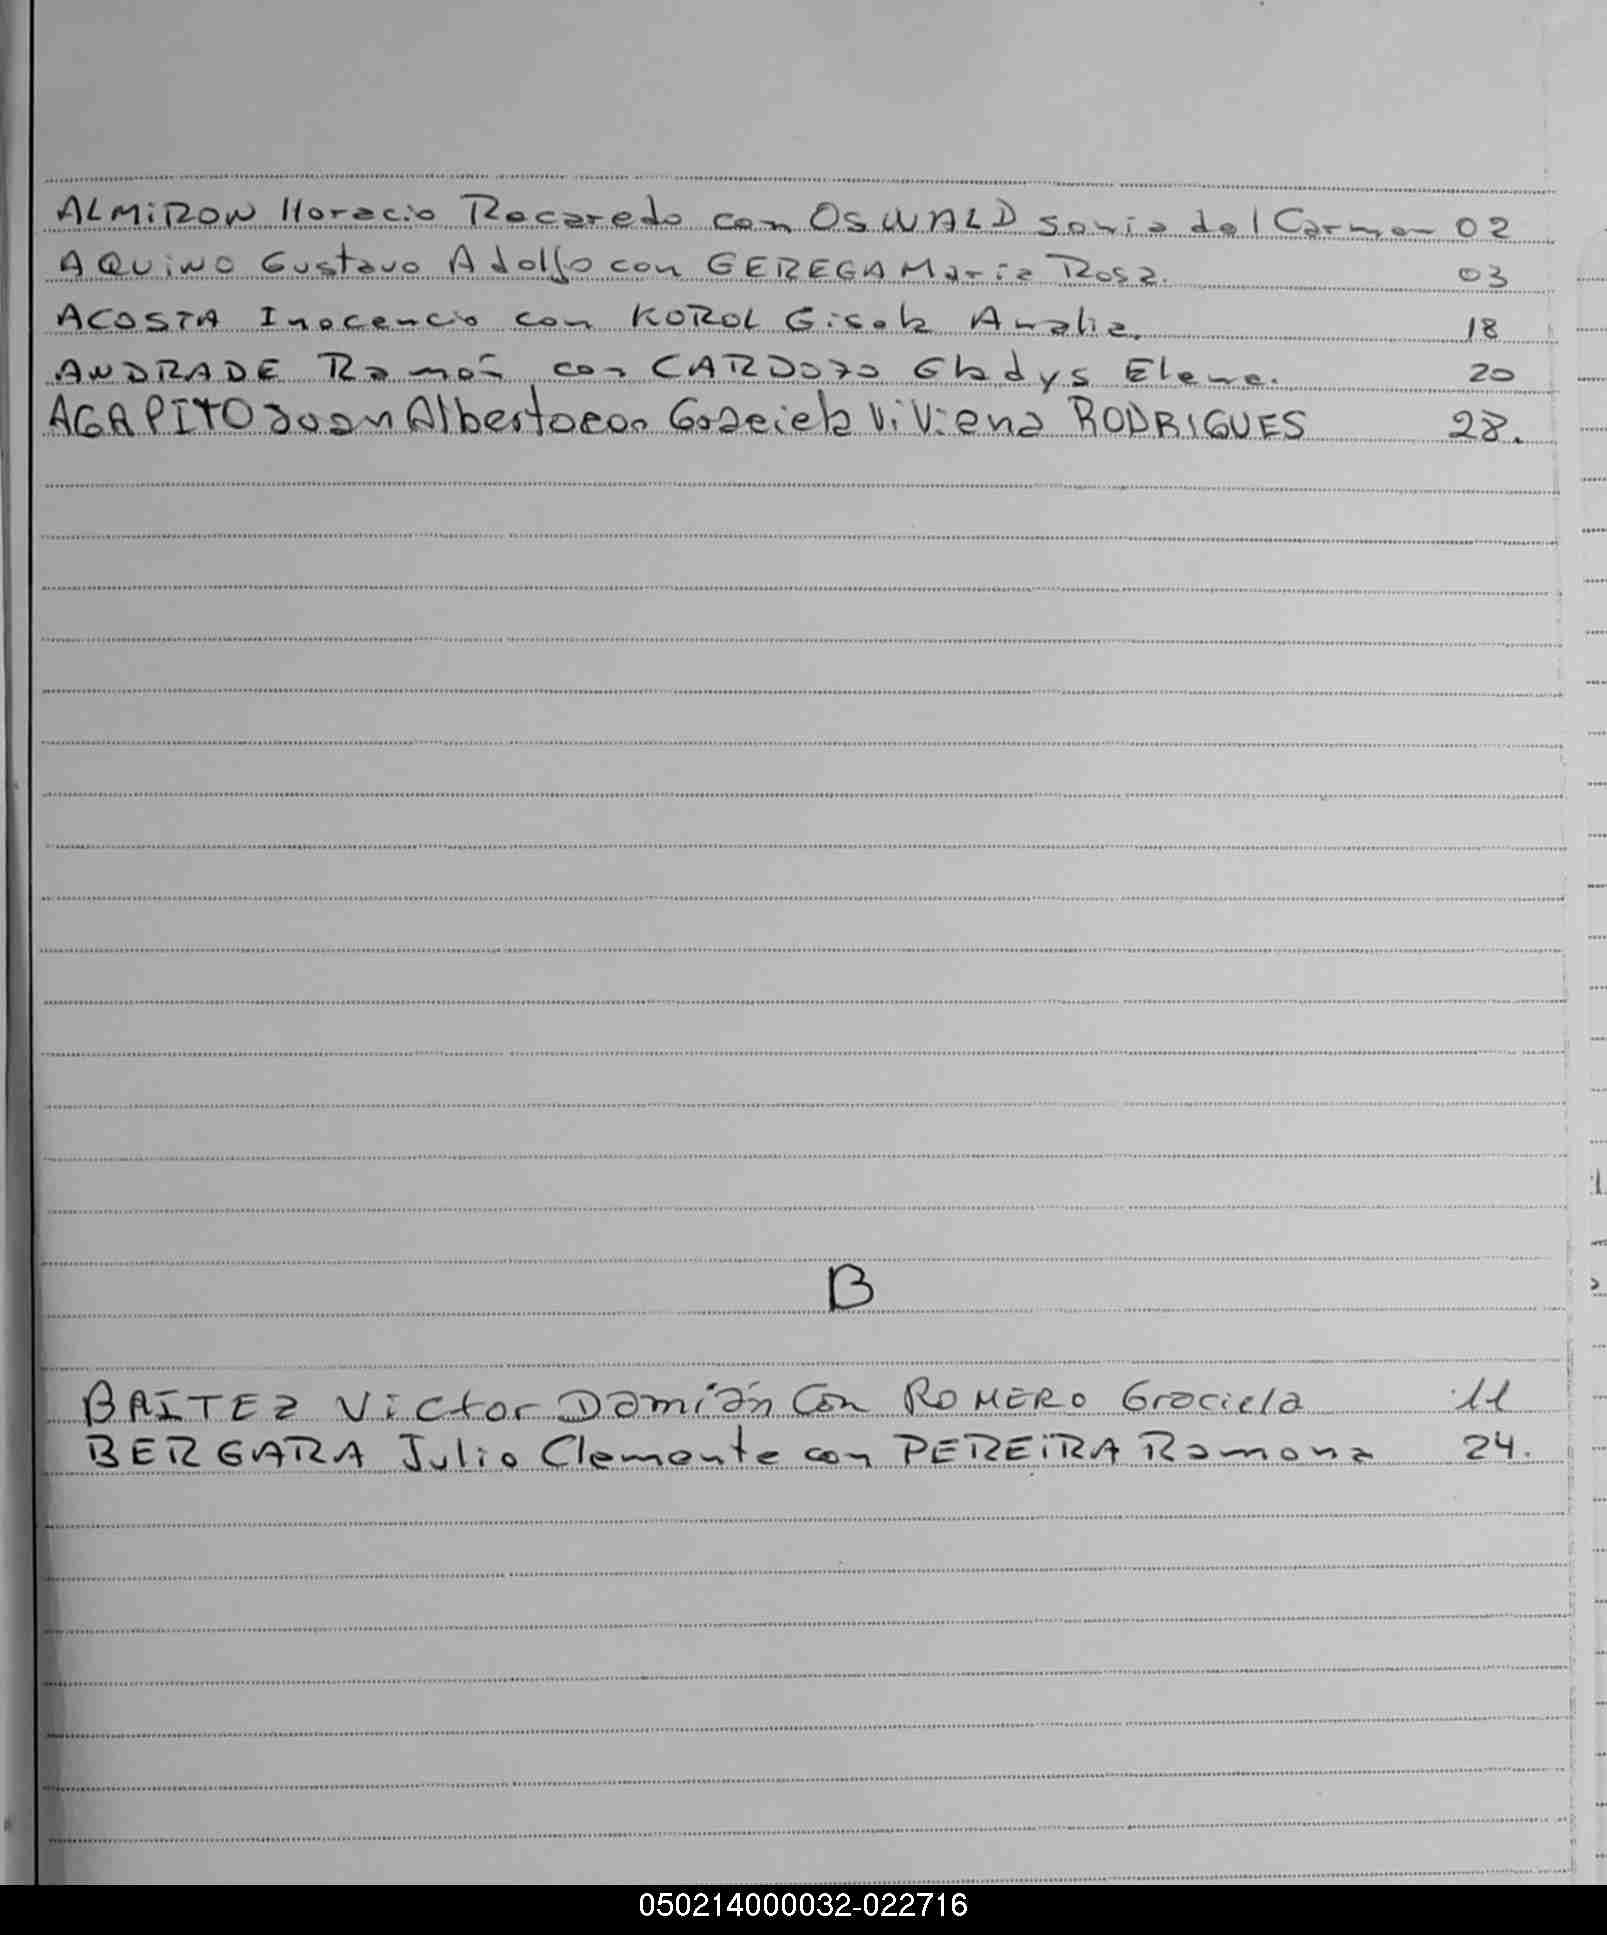 ALMIRON Horacio Recaredo con OSWALD Sonia del Carmen 02
AQUINO Gustavo Adolfo con GEREGA Maria Rosa. 03
ACOSTA Inocencio con KOROL Gisela Analia. 18
ANDRADE Ramón con CARDOZO Gladys Elena. 20
AGAPITO Juan Alberto con Graciela Viviana RODRIGUES 28.
B
BAITEZ Victor Damián Con ROMERO Graciela 11
BERGARA Julio Clemente con PEREIRA Ramona 24.
050214000032-022716